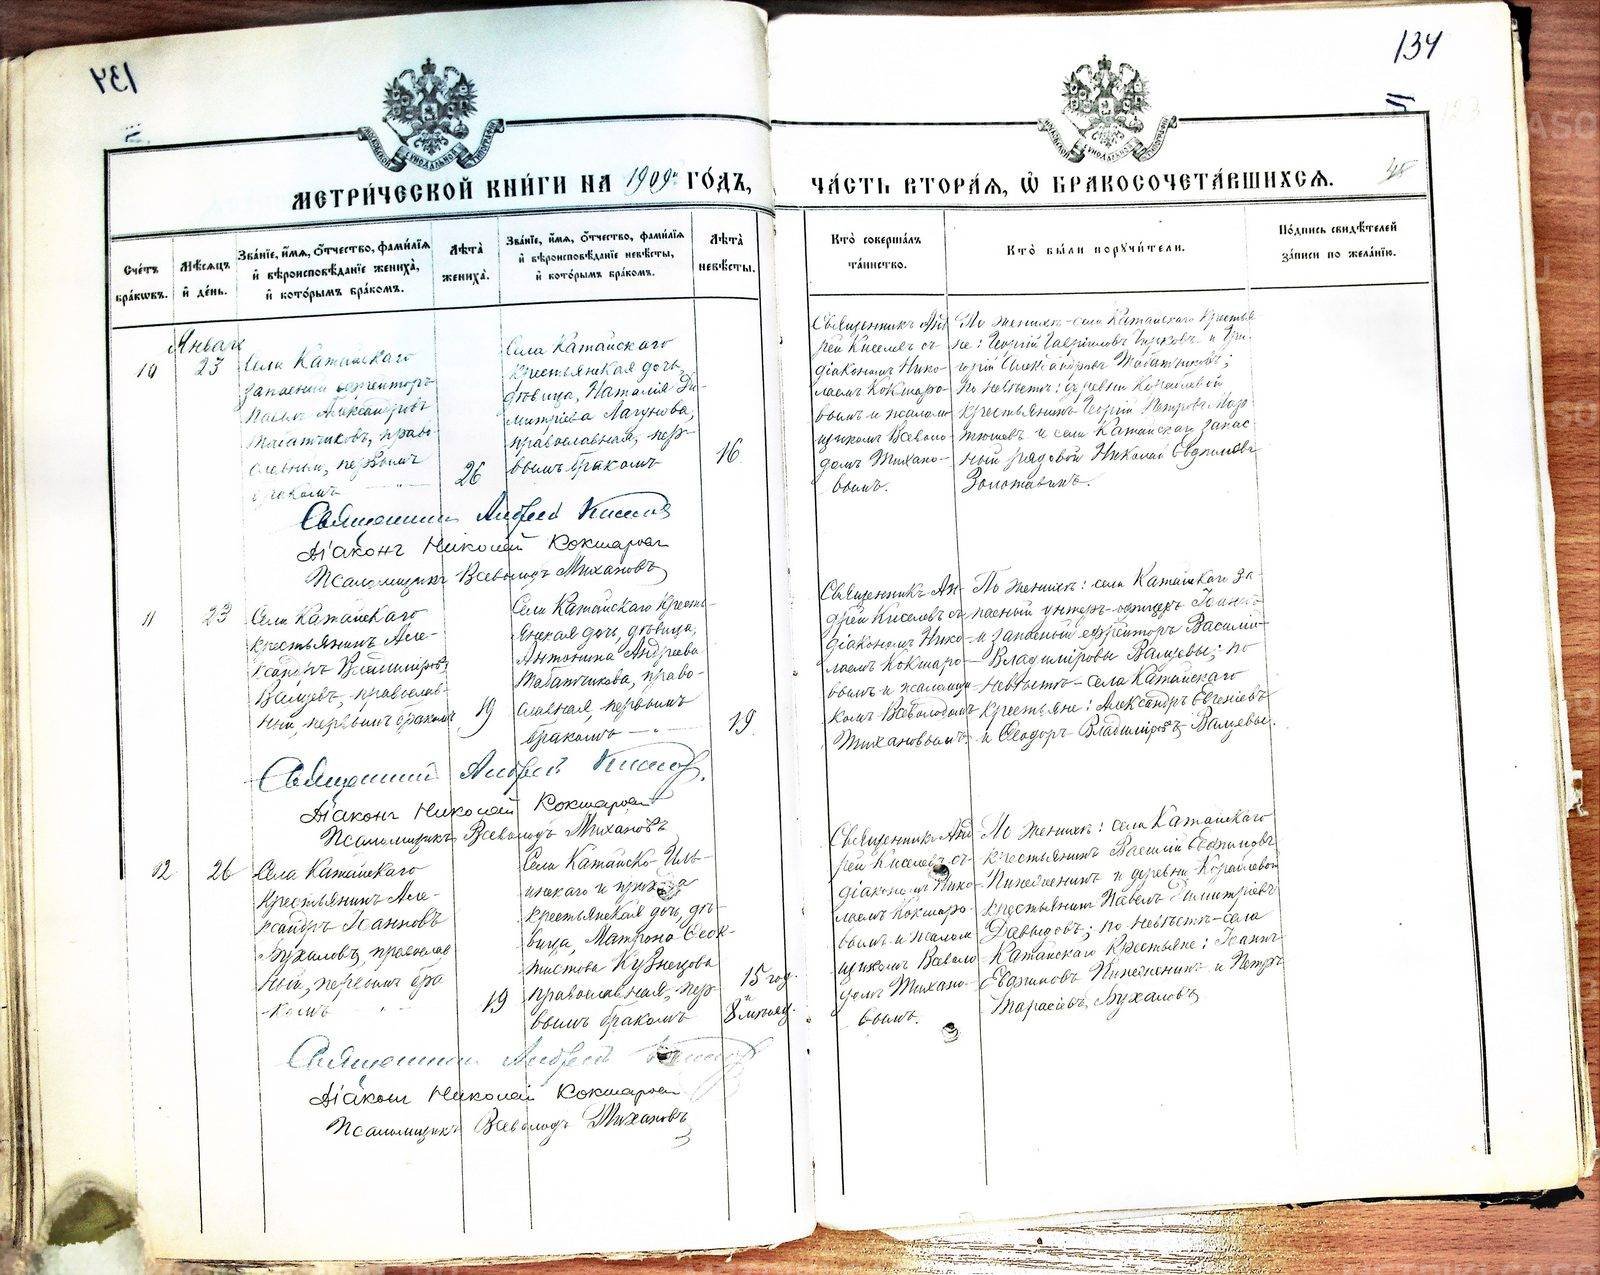 134
134
МОСКОВСКОЙ СИНОДАЛЬНОЙ ТИПОГРАФІИ
МОСКОВСКОЙ СИНОДАЛЬНОЙ ТИПОГРАФІИ
МЕТРИ́ЧЕСКОЙ КНИ́ГИ НА 1909 ГО́ДЪ,
ЧА́СТЬ ВТОРА́Я, Ѿ БРАКОСОЧЕТА́ВШИХСЯ.
Сче́тъ бра́кѡвъ.
Мѣ́сяцъ и҆ де́нь.
Зва́нїе, и҆́мя, ѻ҆́тчество, фами́лїя и҆ вѣроисповѣ́данїе жениха̀, и҆ кото́рымъ бра́комъ.
Лѣта̀ жениха̀.
Зва́нїе, и҆́мя, ѻ҆́тчество, фами́лїя и҆ вѣроисповѣ́данїе невѣ́сты, и҆ кото́рымъ бра́комъ.
Лѣта̀ невѣ́сты.
Кто̀ соверша́лъ та́инство.
Кто̀ бы́ли порꙋчи́тели.
По́дпись свидѣ́телей за́писи по жела́нїю.
Январь
10
23
Села Катайскаго
запасный ефрейторъ
Павелъ Александровъ
Табатчиковъ, право-
славный, первымъ
бракомъ
26
Села Катайскаго
крестьянская дочь,
дѣвица, Наталія Ди-
митріева Лагунова,
православная, пер-
вымъ бракомъ
16
Священникъ Анд
рей Киселевъ съ
діакономъ Нико-
лаемъ Кокшаро-
вымъ и псалом
щикомъ Всеволо-
домъ Тихано-
вымъ.
По женихѣ - села Катайскаго крестья
не: Георгій Гавріиловъ и Гри-
горій Александровъ Табатчиковъ;
по невѣстѣ: деревни Корюлевой
крестьянинъ Георгій Петровъ
и села Катайскаго запас
ный рядовой Николай Евфиміевъ
Золотавинъ.
Священникъ Андрей Киселевъ
Діаконъ Николай Кокшаровъ
Псаломщикъ Всеволодъ Тихановъ
11
23
Села Катайскаго
крестьянинъ Але-
ксандръ Владиміровъ
Валуевъ, православ-
ный, первымъ бракомъ
19
Села Катайскаго кресть-
янская дочь, дѣвица,
Антонина Андреева
Табатчикова, право-
славная, первымъ
бракомъ
19.
Священникъ Ан-
дрей Киселевъ съ
діакономъ Нико-
лаемъ Кокшаро-
вымъ и псаломщи-
комъ Всеволодомъ
Тихановымъ
По женихѣ: села Катайскаго за-
пасный унтеръ-офицеръ Іоаннъ
и запасный ефрейторъ Василій
Владиміровы Валуевы; по
невѣстѣ - села Катайскаго
крестьяне: Александръ Евгеніевъ
и Ѳеодоръ Владиміровъ Валуевы.
Священникъ Андрей Киселевъ
Діаконъ Николай Кокшаровъ
Псаломщикъ Всеволодъ Тихановъ
12
26
Села Катайскаго
крестьянинъ Але-
ксандръ Іоанновъ
Бухаловъ, православ
ный, первымъ бра-
комъ
19
Села Катайско-Иль-
инскаго и прихода
крестьянская дочь, дѣ-
вица, Матрона Ѳеок-
тистова Кузнецова
православная, пер-
вымъ бракомъ
15 год.
и
8 мѣсяц.
Священникъ Анд
рей Киселевъ съ
діакономъ Нико-
лаемъ Кокшаро-
вымъ и псалом
щикомъ Всеволо
домъ Тихано-
вымъ.
По женихѣ: села Катайскаго
крестьянинъ Василій Евфимовъ
и деревни Корюлевой
крестьянинъ Павелъ Димитріевъ
Давыдовъ; по невѣстѣ - села
Катайскаго крестьяне: Іоаннъ
Евфимовъ и Петръ
Тарасовъ Бухаловъ
Священникъ Андрей Киселевъ
Діаконъ Николай Кокшаровъ
Псаломщикъ Всеволодъ Тихановъ